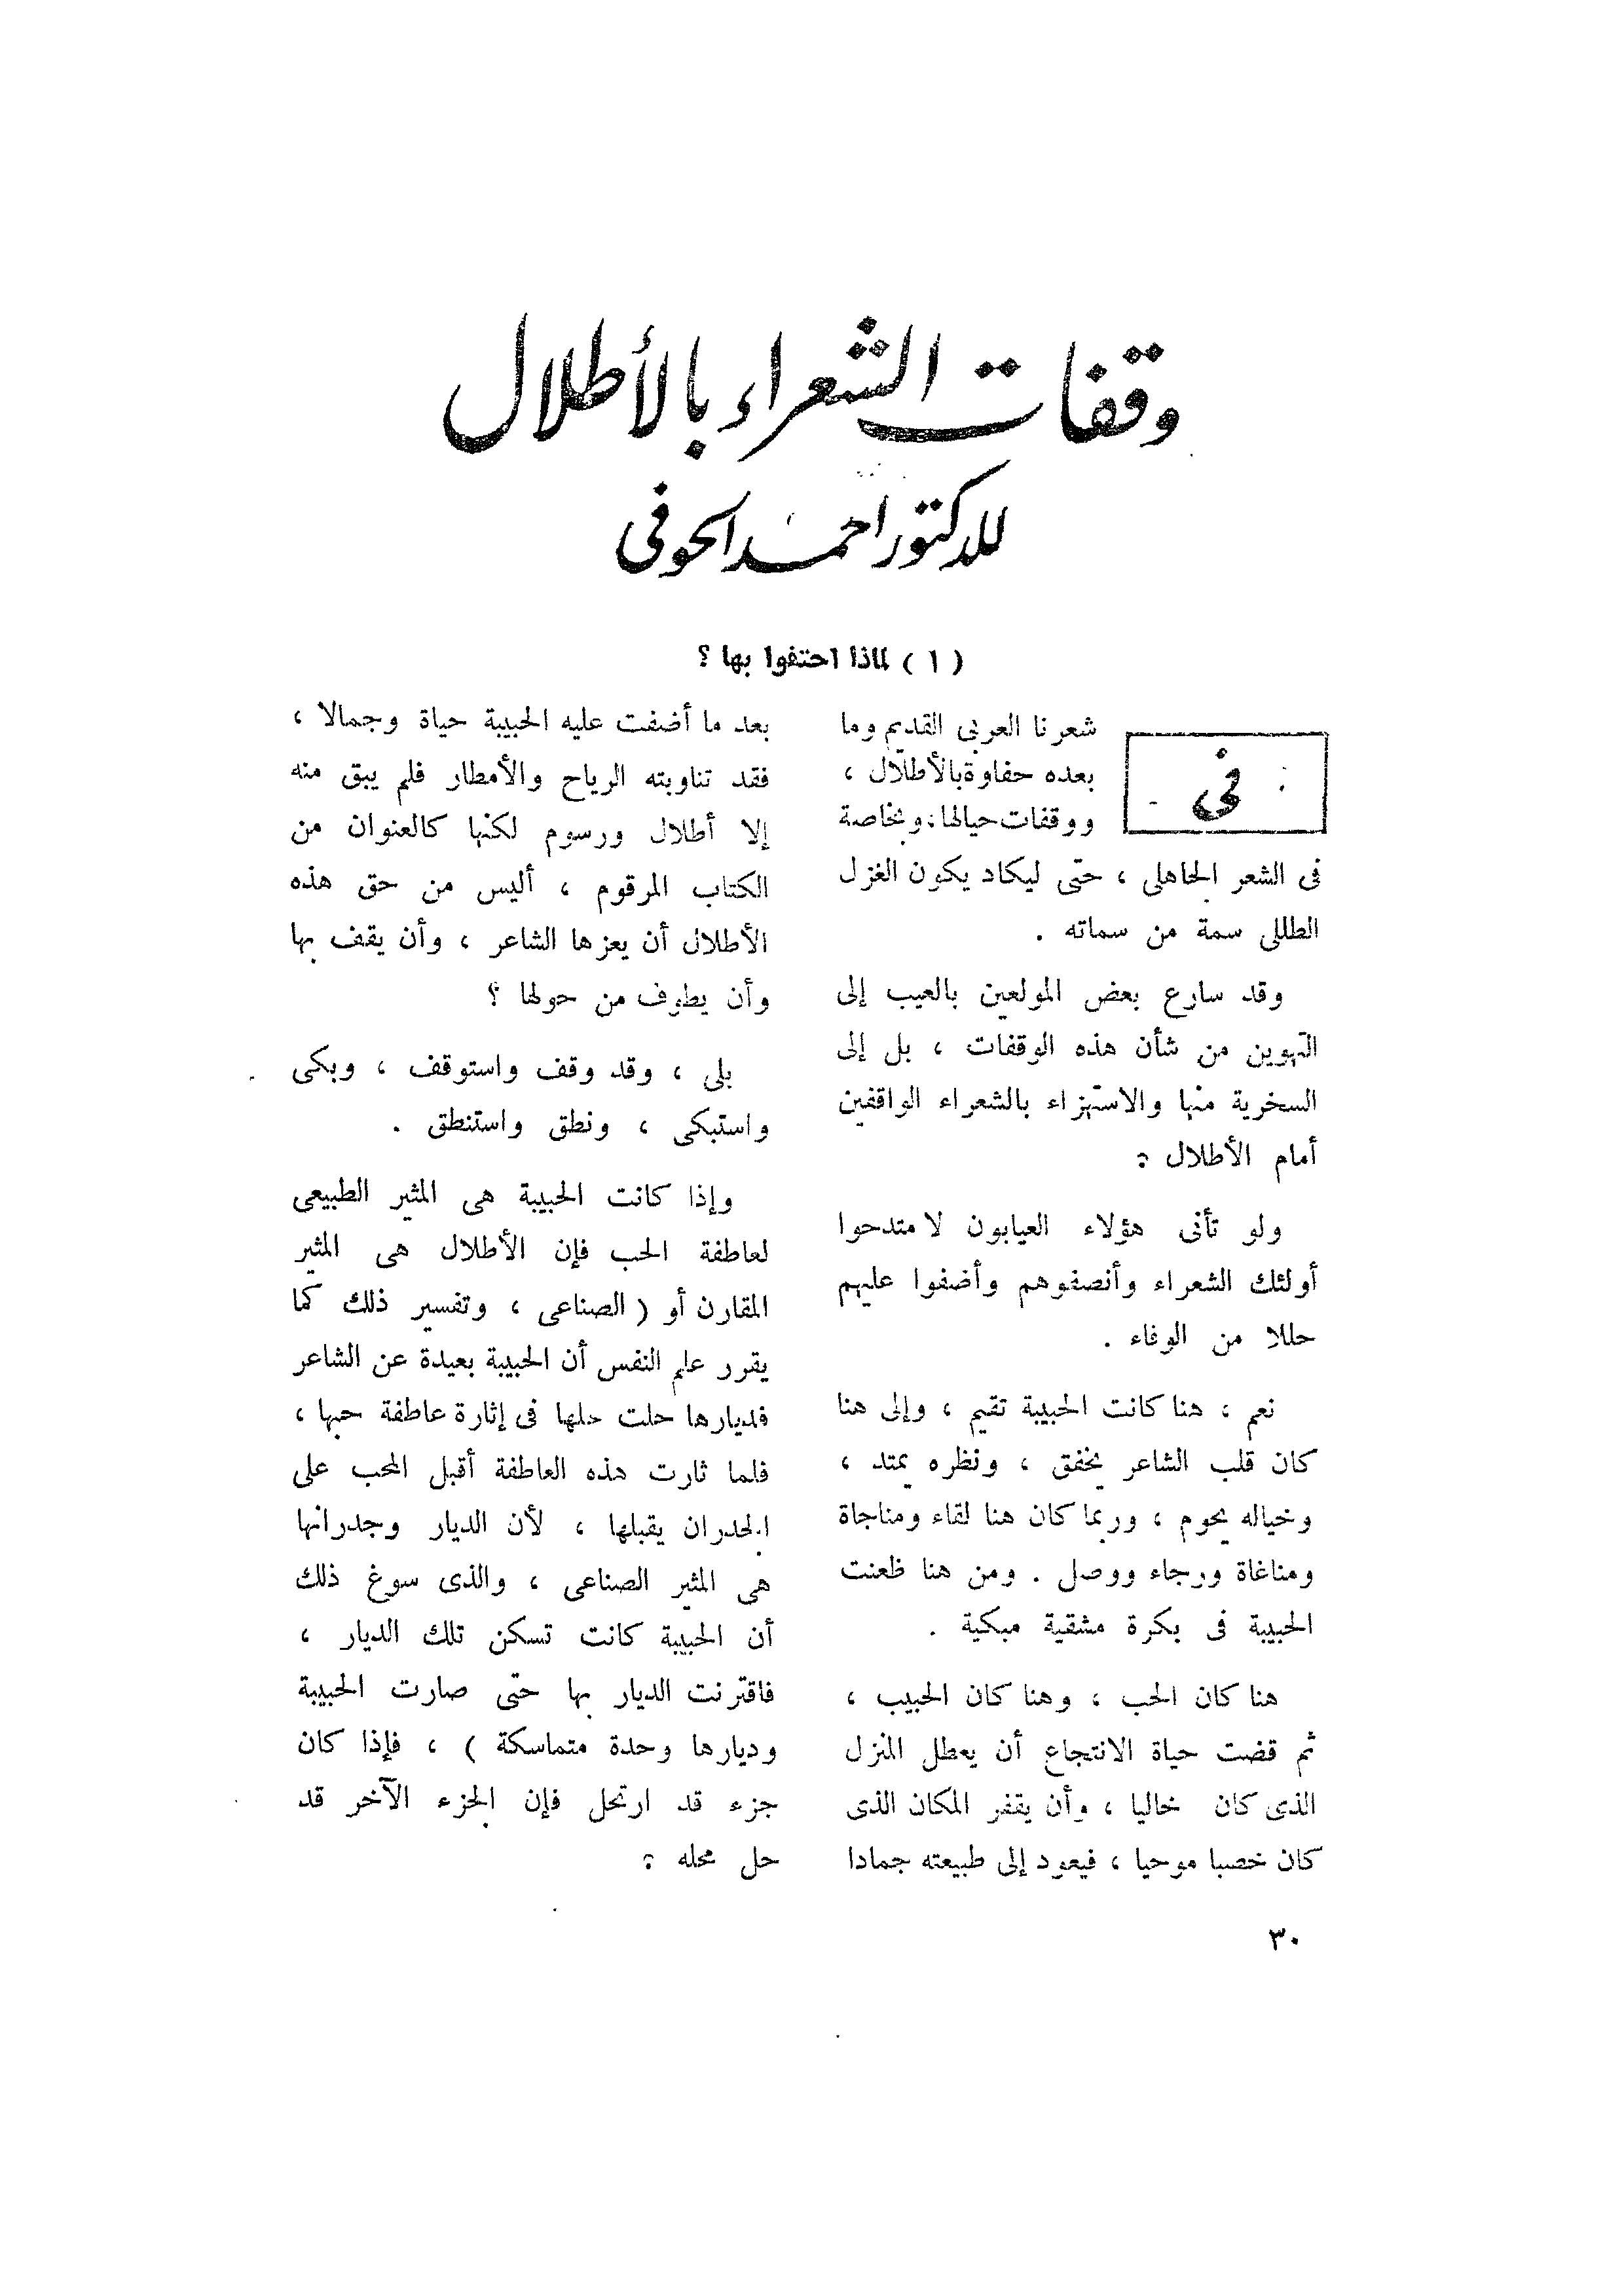 وقفات الشعراء بالأطلال
للدكتور احمد الحوفى
( ١ ) لماذا احتفوا بها ؟
فى
شعرنا العربى القديم وما
بعده حفاوة بالأطلال ،
ووقفات حيالها ، وبخاصة
فى الشعر الجاهلى ، حتى ليكاد يكون الغزل
الطللى سمة من سماته .
وقد سارع بعض المولعين بالعيب إلى
التهوين من شأن هذه الوقفات ، بل إلى
السخرية منها والاستهزاء بالشعراء الواقفين
أمام الأطلال :
ولو تأنى هؤلاء العيابون لامتدحوا
أولئك الشعراء وأنصفوهم وأضفوا عليهم
حللا من الوفاء .
نعم ، هنا كانت الحبيبة تقيم ، وإلى هنا
كان قلب الشاعر يخفق ، ونظره يمتد ،
وخياله يحوم ، وربما كان هنا لقاء ومناجاة
ومناغاة ورجاء ووصل . ومن هنا ظعنت
الحبيبة فى بكرة مشقية مبكية .
هنا كان الحب ، وهنا كان الحبيب ،
ثم قضت حياة الانتجاع أن يعطل المنزل
الذى كان خاليا ، وأن يقفر المكان الذى
كان خصبا موحيا ، فيعود إلى طبيعته جمادا
بعد ما أضفت عليه الحبيبة حياة وجمالا ،
فقد تناوبته الرياح والأمطار فلم يبق منه
إلا أطلال ورسوم لكنها كالعنوان من
الكتاب المرقوم ، أليس من حق هذه
الأطلال أن يعزها الشاعر ، وأن يقف بها
وأن يطوف من حولها ؟
بلى ، وقد وقف واستوقف ، وبكى
واستبكى ، ونطق واستنطق .
وإذا كانت الحبيبة هى المثير الطبيعى
لعاطفة الحب فإن الأطلال هى المثير
المقارن أو ( الصناعى ، وتفسير ذلك كما
يقرر علم النفس أن الحبيبة بعيدة عن الشاعر
فديارها حلت محلها فى إثارة عاطفة حبها ،
فلما ثارت هذه العاطفة أقبل المحب على
الجدران يقبلها ، لأن الديار وجدرانها
هى المثير الصناعى ، والذى سوغ ذلك
أن الحبيبة كانت تسكن تلك الديار ،
فاقترنت الديار بها حتى صارت الحبيبة
وديارها وحدة متماسكة ) ، فإذا كان
جزء قد ارتحل فإن الجزء الآخر قد
حل محله :
٣٠